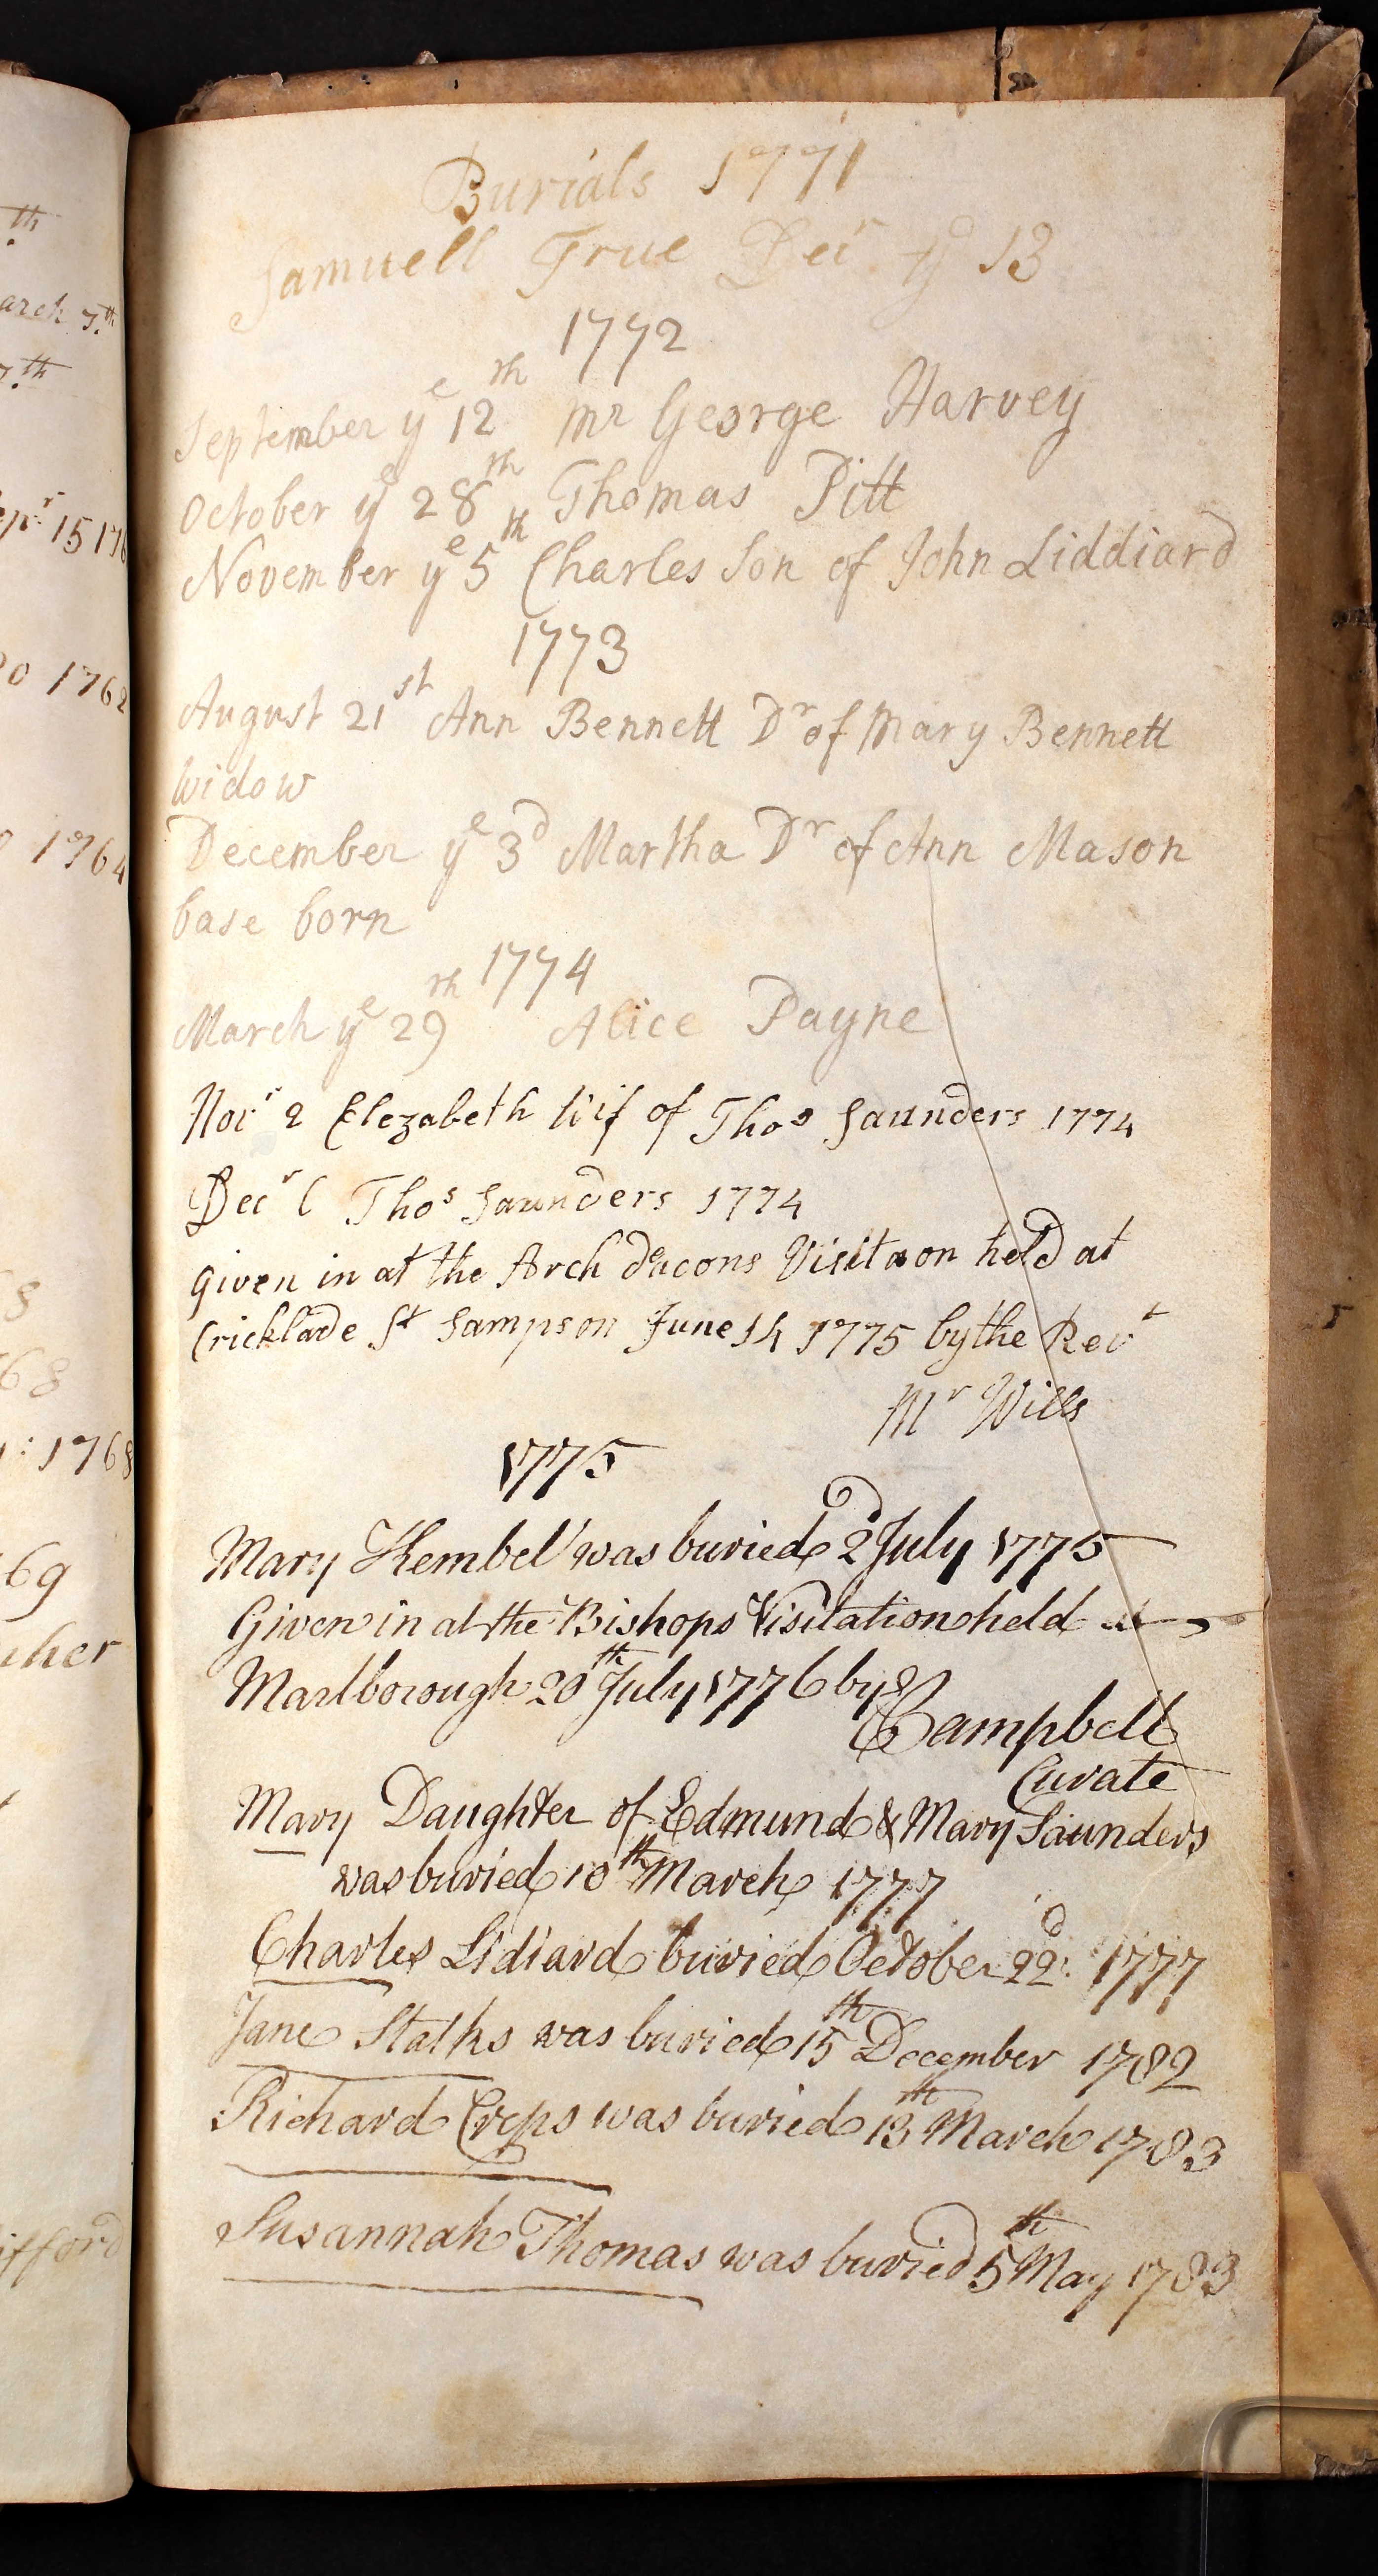 th
arch 7.th
7.th
epr 15 176
20 1762
1764
8
68
: 1768
69
ifford
Burials 1771
Samuell True Decr ye 13
1772
September ye 12th Mr George Harvey
October ye 28th Thomas Pitt
November ye 5th Charles Son of John Liddiard
1773
August 21st Ann Bennett Dr of Mary Bennett
Widow
December ye 3d Martha Dr of Ann Mason
base born
1774
March ye 29th Alice Payne
Novr 2 Elezabeth Wif of Thos Saunders 1774
Decr 6 Thos Saunders 1774
given in at the Arch deacons Visitaon held at
Cricklade St Sampson June 14 1775 by the Revt
Mr Wills
1775
Mary Kembel was buried 2d July 1775
Given in at the Bishops Visitation held at
Marlborough 20th July 1776 by
Campbell
Curate
Mary Daughter of Edmund & Mary Saunders
was buried 10th March 1777
Charles Lidiard buried October 22d: 1777
Jane Stalks was buried 15th December 1782
Richard Crips was buried 13th March 1783
Susannah Thomas was buried 5th May 1783